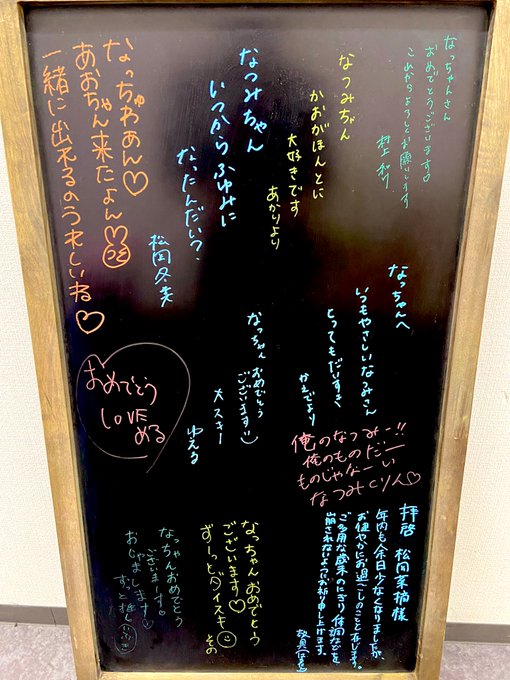 なっちゃんさん
おめでとうございます♡
これからよろしくお願いします
村上
なつみちゃん
かおがほんとに
大好きです
あかりより
なつみちゃん
いつからふゆみに
なったんだい？
松岡冬美
なっちゅわあん♡
あおちゃん来たよん♡
一緒に出れるのうれしいね♡
なっちゃんへ
いつもやさしいなつみさん
とってもだいすき
かえでより
なっちゃんおめでとう
ございます!!
大スキー
ゆえる
おめでとう
LOVE
める
俺のなつみー!!
俺のものだー
ものじゃなーい
なつみくりん♡
拝啓 松岡菜摘様
年内も余日少なくなりましたが、
お健やかにお過ごしのことと存じます。
ご多用な歳末のにぎり 体調などを
崩されないようにお祈り申し上げます。
敬具
なっちゃんおめでとう
ございます♡
ずーっとダイスキ
その
なっちゃんおめでとう
ございまーす♡
おじゃましまーす♡
ずっと推し